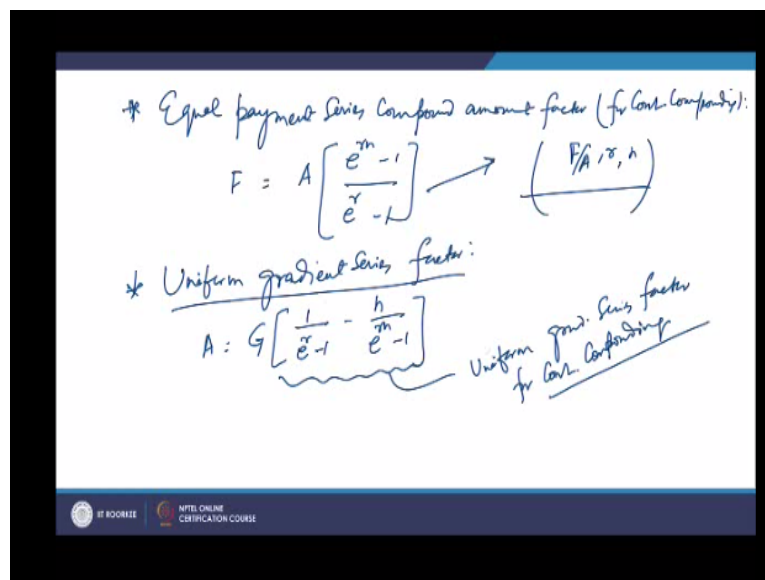 * Equal payment Series Compound amount factor (for Cont. Compounding):
F = A [ (e^rn - 1) / (e^r - 1) ] → (F/A, r, n)
* Uniform gradient Series factor:
A = G [ 1/(e^r - 1) - n/(e^rn - 1) ]
Uniform grad. Series factor
for Cont. Compounding
IIT ROORKEE
NPTEL ONLINE
CERTIFICATION COURSE